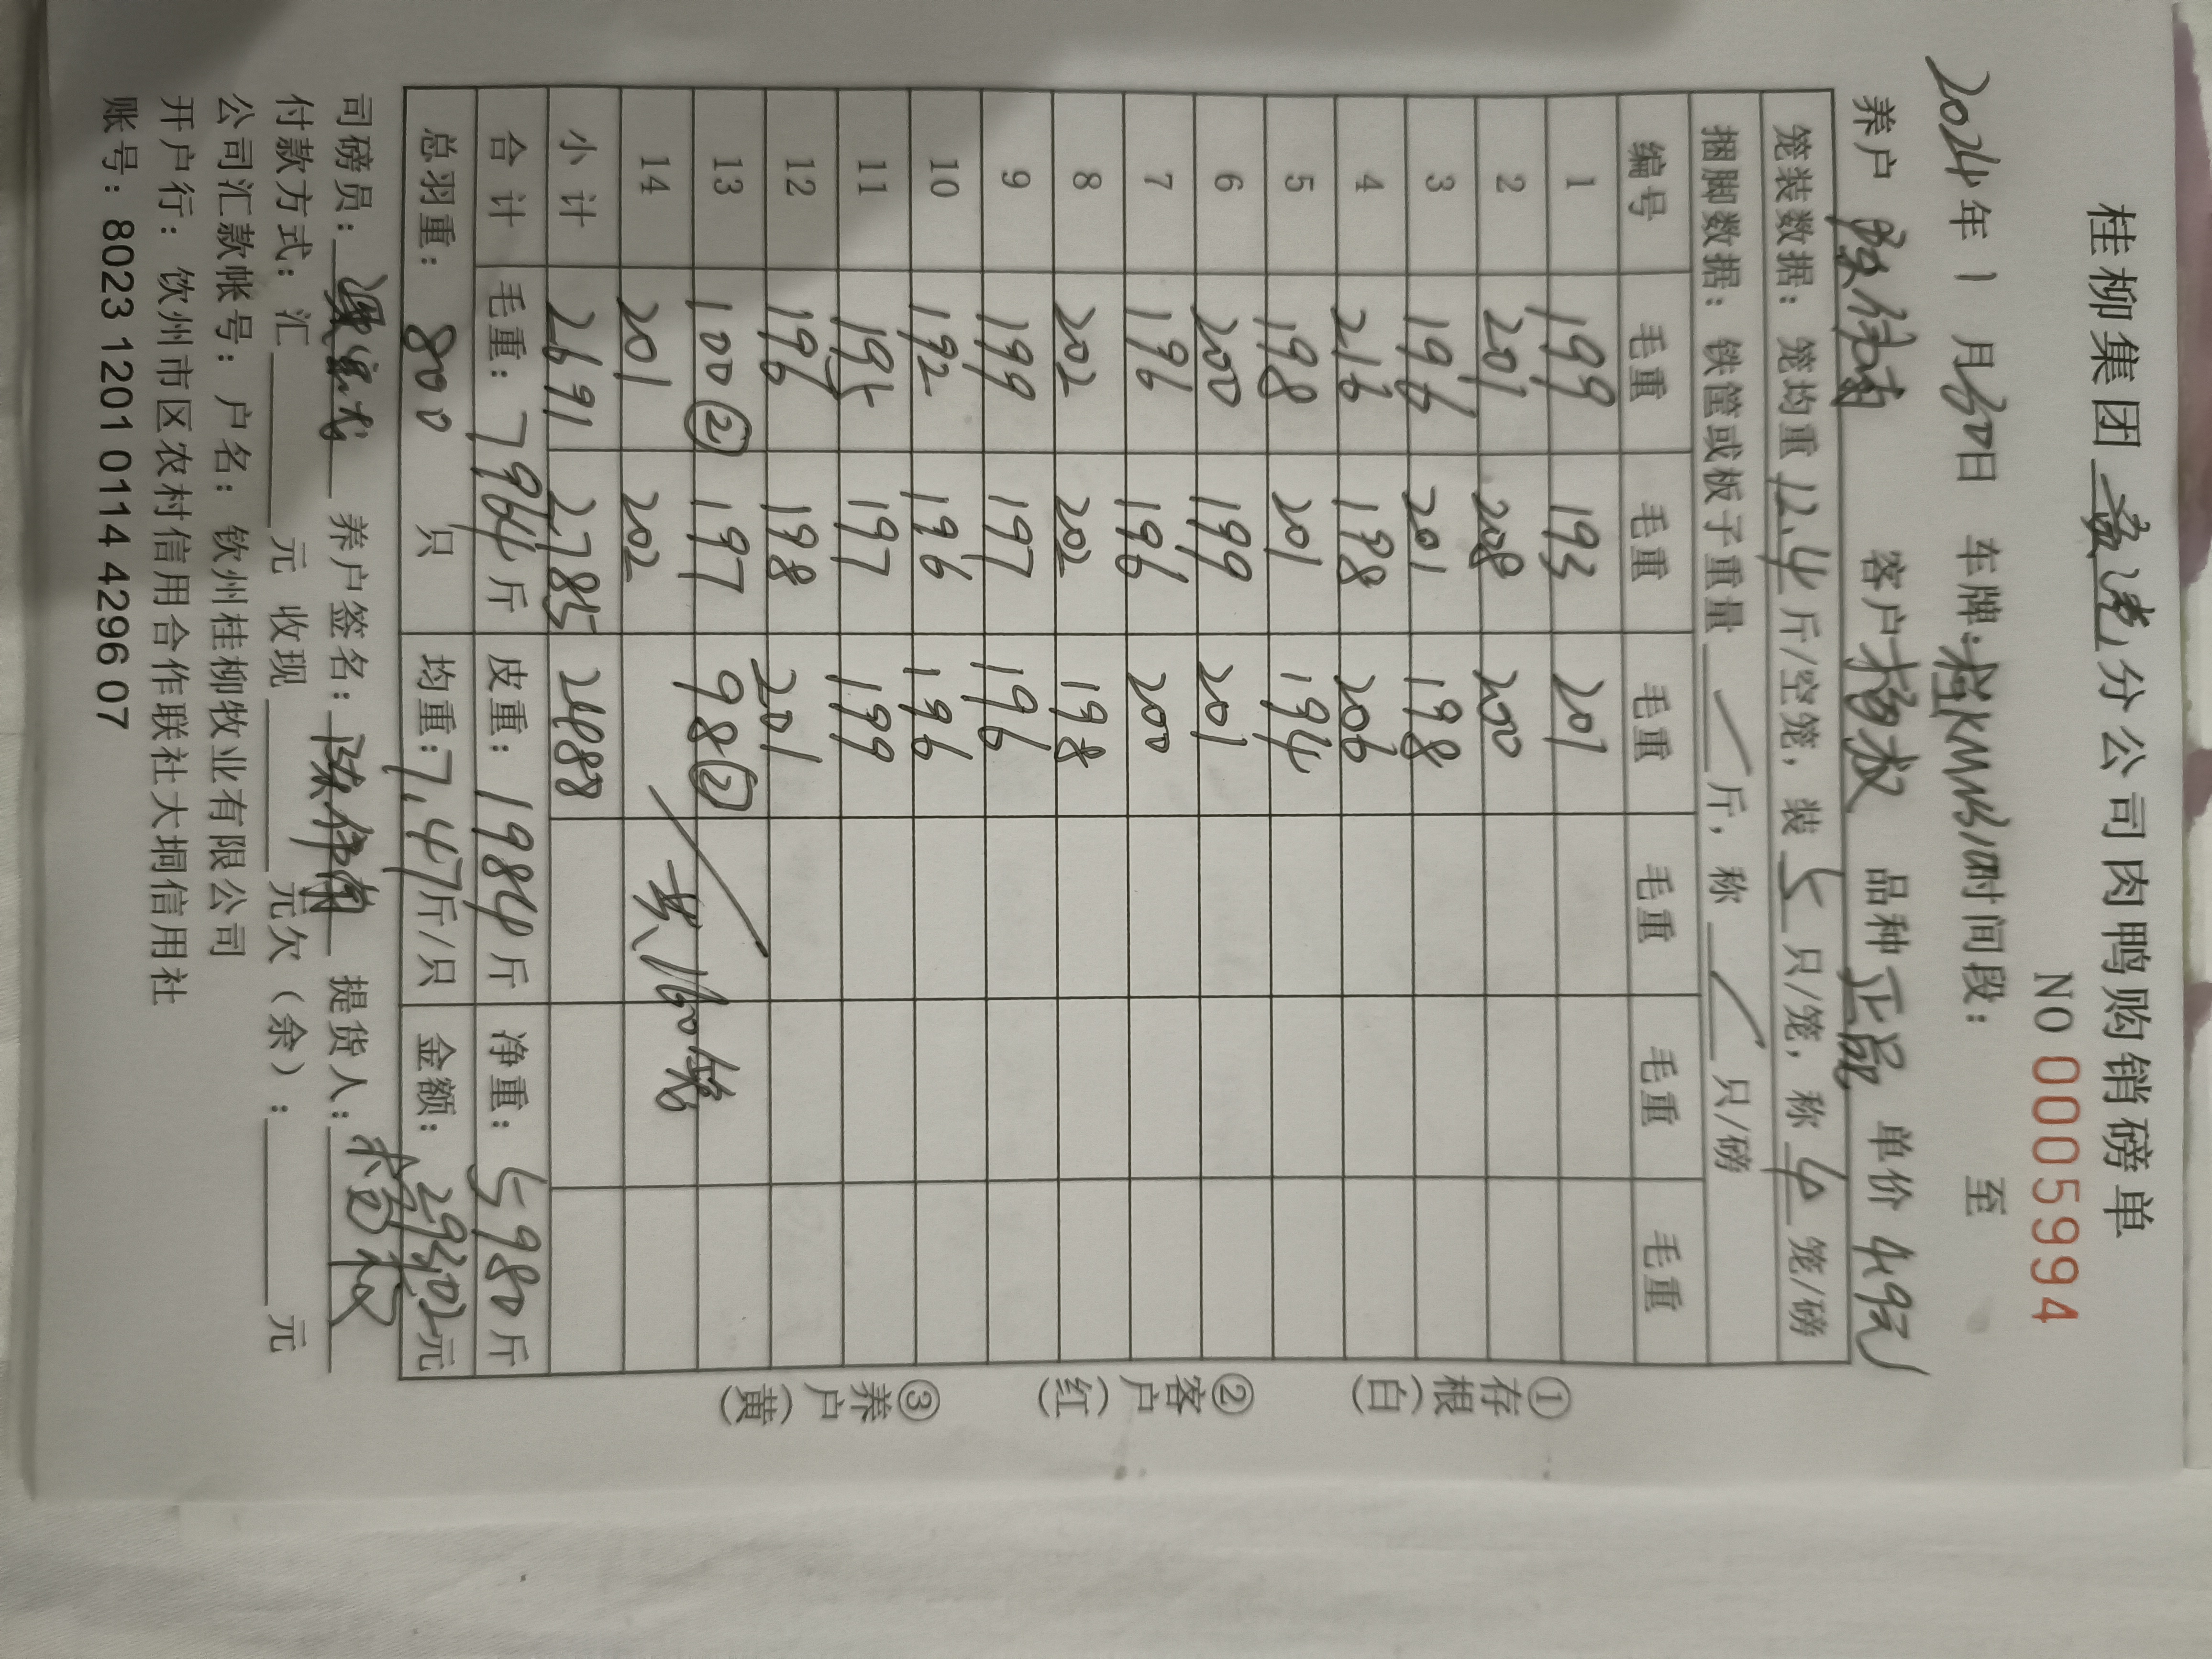 桂柳集团 分公司肉鸭购销磅单
NO 0005994
2024年1月30日 车牌:桂KMB 时间段: 至
养户 陈伟南 客户 杨叔 品种 正品 单价 4.9元/
笼装数据: 笼均重 12.4 斤/空笼, 装 5 只/笼, 称 4 笼/磅
捆脚数据: 铁筐或板子重量 / 斤, 称 / 只/磅
编号 毛重 毛重 毛重 毛重 毛重 毛重
1 199 193 201
2 201 208 200
3 196 201 198
4 216 198 206
5 198 201 194
6 200 199 201
7 196 196 200
8 202 202 198
9 199 197 196
10 192 196 196
11 195 197 199
12 196 198 201
13 100② 197 98②
14 201 202 / 共160笼
小计 2691 2785 2488
合计 毛重: 7964 斤 皮重: 1984 斤 净重: 5980 斤
总羽重: 800 只 均重: 7.47 斤/只 金额: 29302 元
司磅员: 养户签名: 陈伟南 提货人: 杨叔
付款方式: 汇 元 收现 元欠(余): 元
公司汇款帐号: 户名: 钦州桂柳牧业有限公司
开户行: 钦州市区农村信用合作联社大垌信用社
账号: 8023 1201 0114 4296 07
①存根(白)
②客户(红)
③养户(黄)